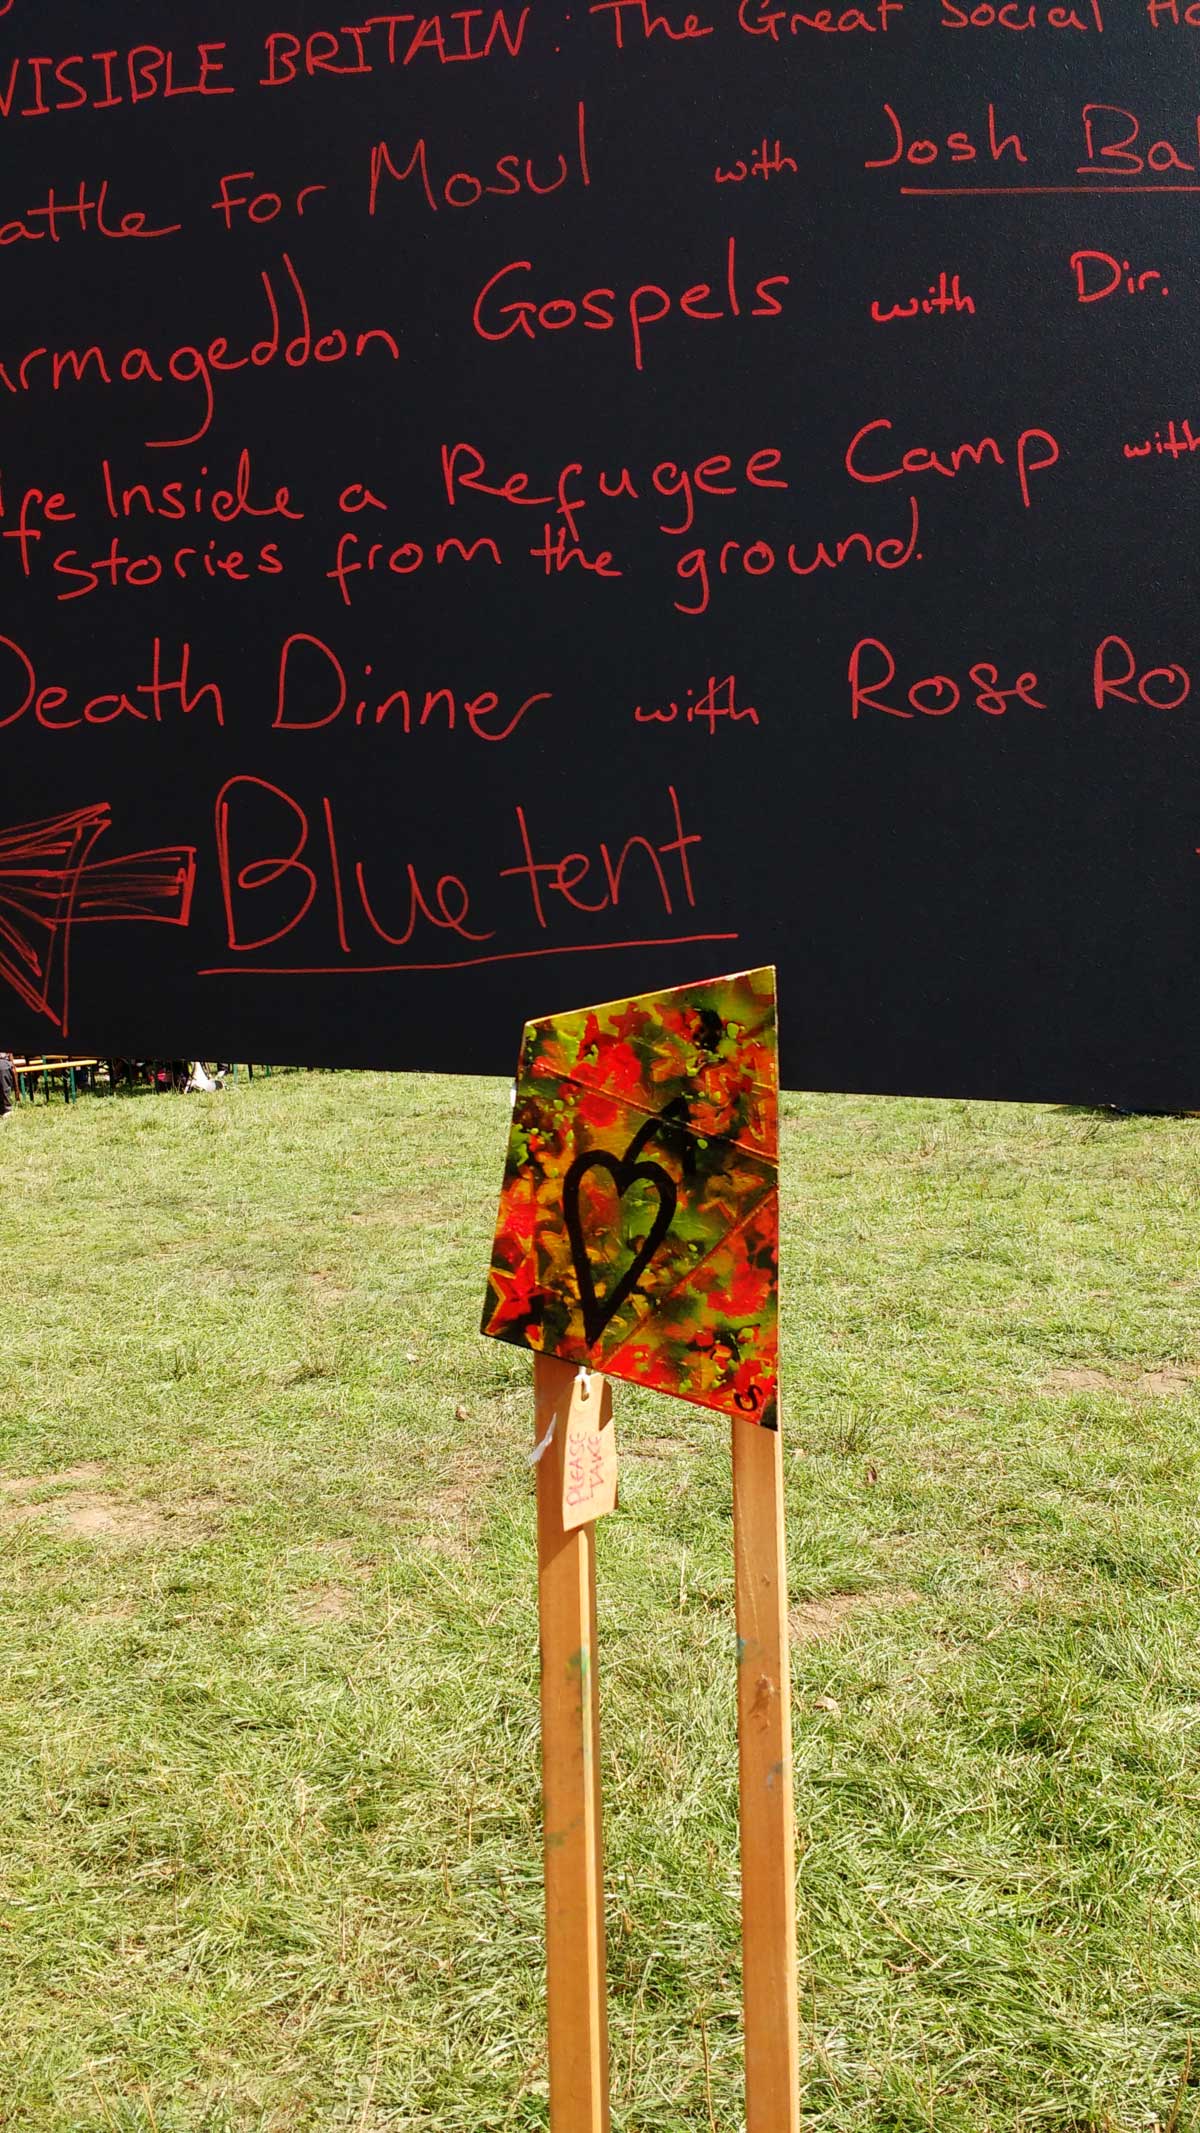 VISIBLE BRITAIN : The Great Social
attle For Mosul with Josh Ba
rmageddon Gospels with Dir.
fe Inside a Refugee Camp with
stories from the ground.
Death Dinner with Rose Ro
Blue tent
PLEASE
TAKE
S